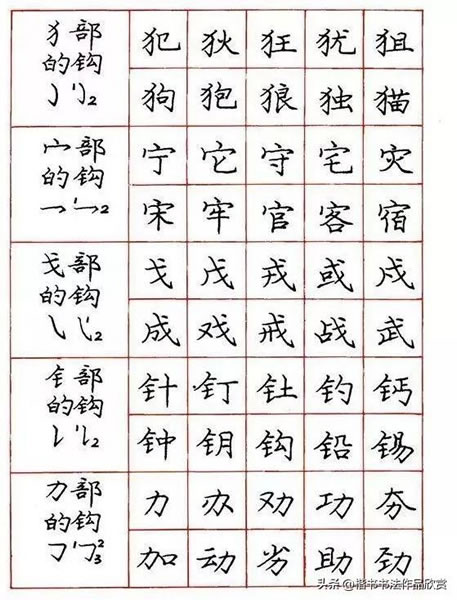 犭部 犯 狄 狂 犹 狙
的钩
2 狗 狍 狼 独 猫
宀部 宁 它 守 宅 灾
的钩
2 宋 牢 官 客 宿
戈部 戈 戊 戎 或 戍
的钩
2 成 戏 戒 战 武
钅部 针 钉 钍 钓 钙
的钩
2 钟 钥 钩 铅 锡
力部 力 办 劝 功 夯
的钩
2 3 加 动 劣 助 劲
头条@楷书书法作品欣赏